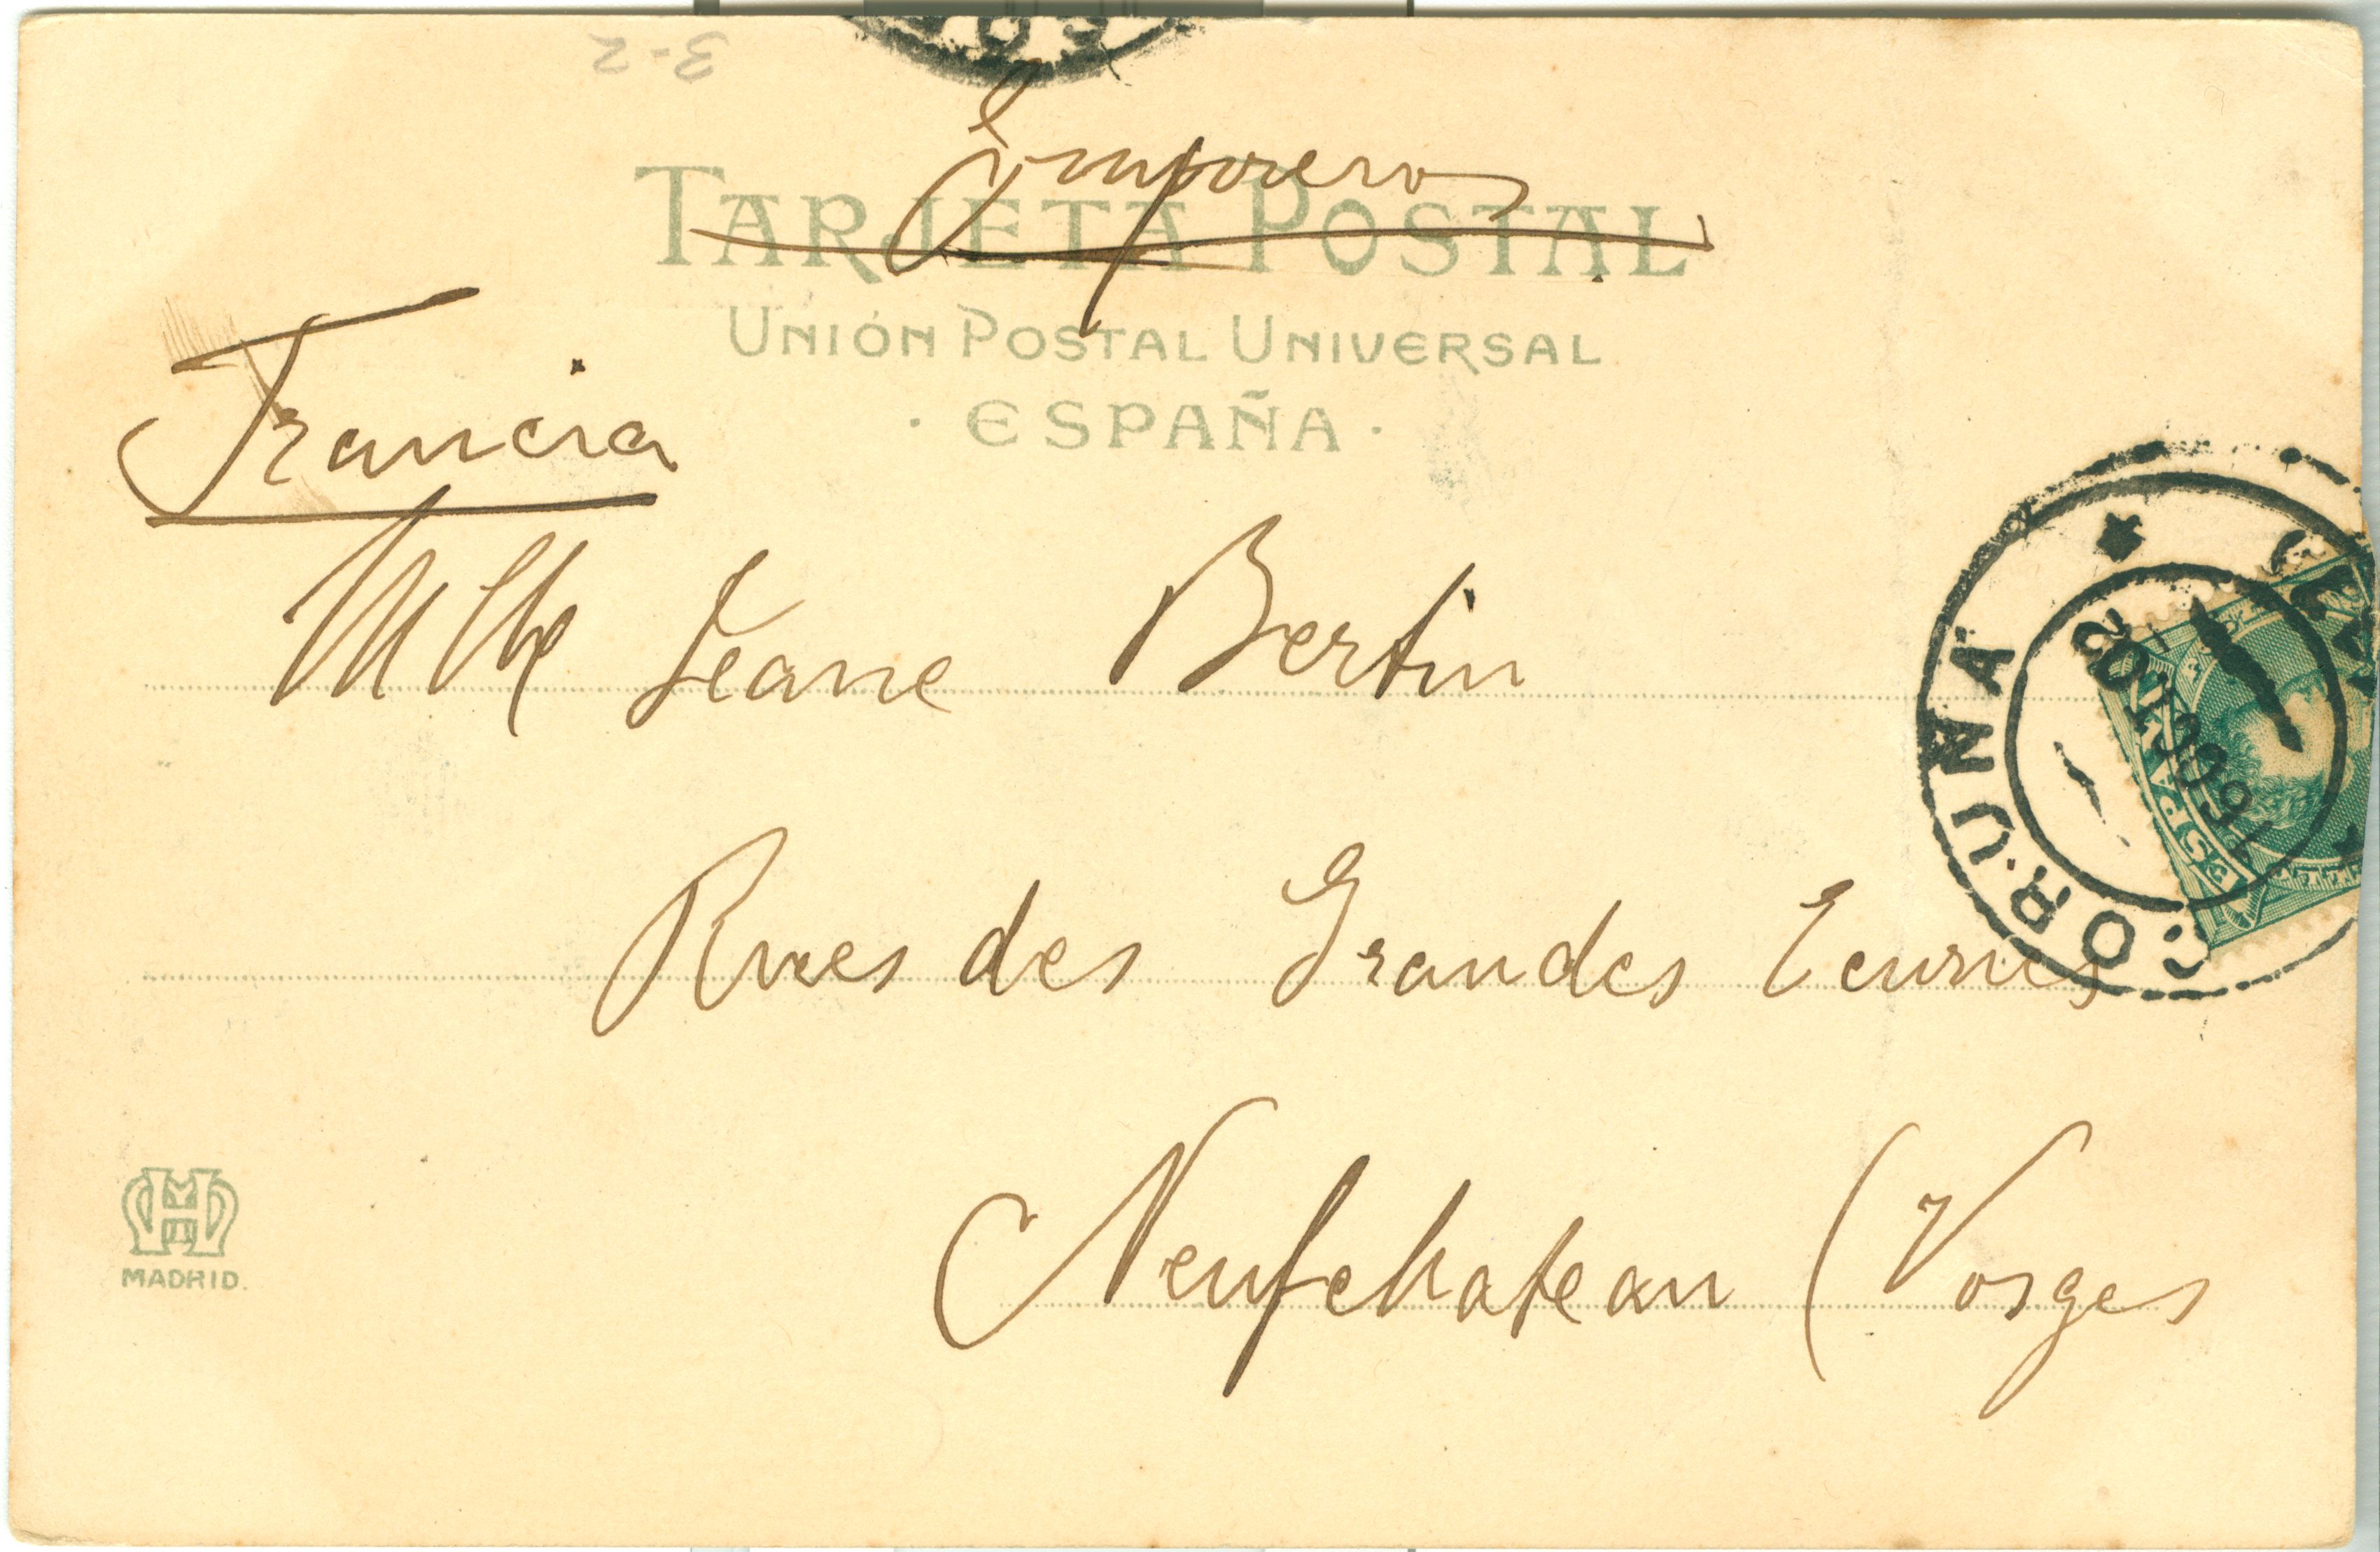 3-2
Impresos
TARJETA POSTAL
UNIÓN POSTAL UNIVERSAL
· ESPAÑA ·
Francia
Mlle Jeane Bertin
Rues des Grandes Ecuries
Neufchateau (Vosges
CORUÑA
16 OCT 02
ESPAÑA
MADRID.